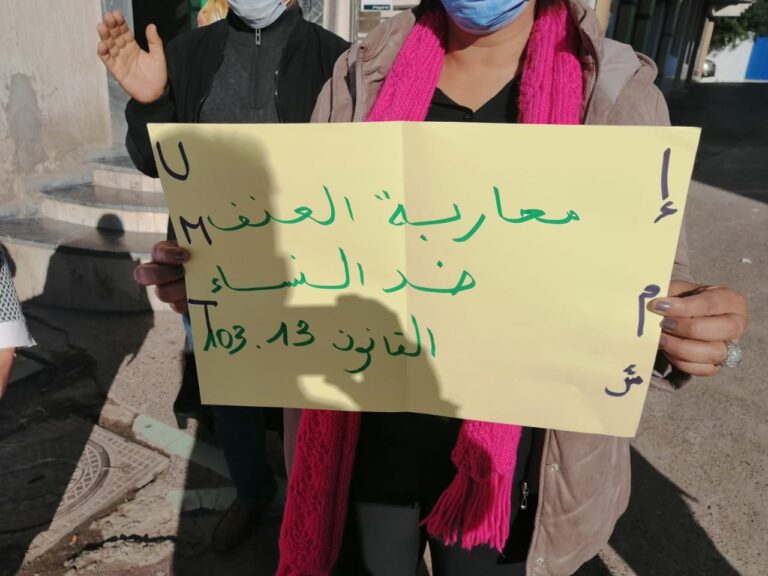 محاربة العنف
ضد النساء
القانون 103.13
إ
م
ش
U
M
T